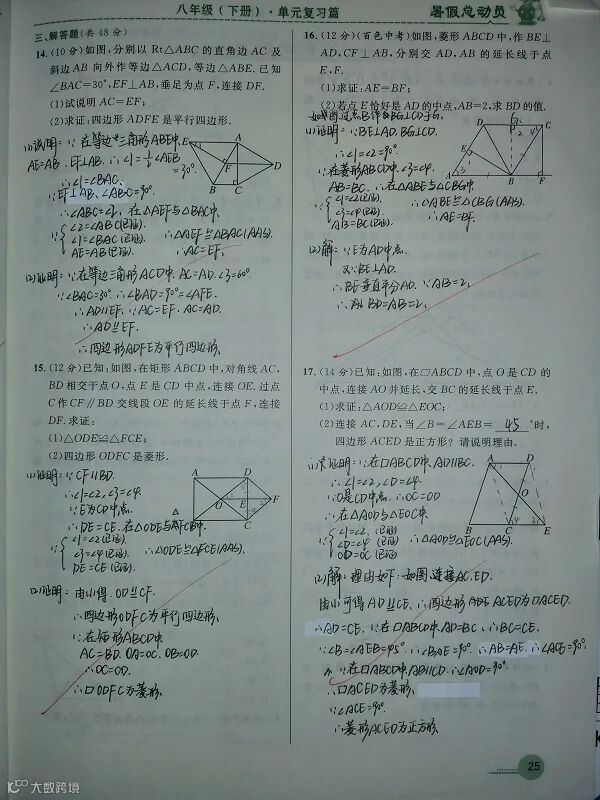 八年级（下册）·单元复习篇
暑假总动员
三、解答题(共 48 分)
14.(10分)如图,分别以 Rt△ABC 的直角边 AC 及
斜边 AB 向外作等边△ACD,等边△ABE.已知
∠BAC=30°,EF⊥AB,垂足为点 F,连接 DF.
(1)试说明 AC=EF;
(2)求证:四边形 ADFE 是平行四边形.
(1)试说明:∵在等边三角形ABE中,
AE=AB,EF⊥AB,∴∠1=½∠AEB
=30°.
∴∠1=∠BAC.
∵EF⊥AB,∠ABC=90°.
在△AEF与△BAC中,
∠1=∠BAC(已证)
AE=AB(已证)
∴△AEF≌△BAC(AAS).
∴AC=EF.
(2)证明:∵在等边三角形ACD中,AC=AD,∠3=60°.
∵∠BAC=30°,∴∠BAD=90°=∠AFE.
∴AD∥EF.∵AC=EF,AC=AD.
∴AD≌EF.
∴四边形ADFE为平行四边形.
E
A
D
F
B
C
15.(12 分)已知:如图,在矩形 ABCD 中,对角线 AC,
BD 相交于点 O,点 E 是 CD 中点,连接 OE.过点
C 作 CF∥BD 交线段 OE 的延长线于点 F,连接
DF.求证:
(1)△ODE≌△FCE;
(2)四边形 ODFC 是菱形.
(1)证明:∵CF∥BD.
∴∠1=∠2,∠3=∠4.
∵E为CD中点.
∴DE=CE.在△ODE与△FCE中.
∠1=∠2(已证)
∠3=∠4(已证)
DE=CE(已证)
∴△ODE≌△FCE(AAS).
(2)证明:由(1)得,OD≌CF.
∴四边形ODFC为平行四边形.
∵在矩形ABCD中
AC=BD,OA=OC,OB=OD.
∴OC=OD.
∴□ODFC为菱形.
A
D
O
E
F
B
C
16.(12分)(百色中考)如图,菱形 ABCD 中,作 BE⊥
AD,CF⊥AB,分别交 AD,AB 的延长线于点
E,F.
(1)求证:AE=BF;
(2)若点 E 恰好是 AD 的中点,AB=2,求 BD 的值.
如图,过点B作BG⊥CD于G,
(1)证明:∵BE⊥AD,BG⊥CD.
∴∠1=∠2=90°.
∵在菱形ABCD中,∠3=∠4.
AB=BC.∴在△ABE与△CBG中.
∠1=∠2(已证)
∠3=∠4(已证)
AB=BC(已证)
∴△ABE≌△CBG(AAS)
∴AE=BF.
(2)解:∵E为AD中点.
又∵BE⊥AD.
∴BE垂直平分AD.∵AB=2.
∴BD=AB=2.
D
G
C
E
A
B
F
17.(14 分)已知:如图,在□ABCD 中,点 O 是 CD 的
中点,连接 AO 并延长,交 BC 的延长线于点 E.
(1)求证:△AOD≌△EOC;
(2)连接 AC,DE,当∠B=∠AEB= 45 °时,
四边形 ACED 是正方形?请说明理由.
(1)证明:∵在□ABCD中,AD∥BC.
∴∠1=∠2,∠D=∠4.
∵O是CD中点,∴OC=OD
∴在△AOD与△EOC中.
∠1=∠2(已证)
∠D=∠4(已证)
OD=OC(已证)
∴△AOD≌△EOC(AAS).
(2)解:理由如下:如图连接AC,ED.
由(1)可得AD≌CE.∴四边形ACED为□ACED.
∴AD=CE.∵在□ABCD中,AD=BC,∴BC=CE.
∵∠B=∠AEB=45°.∴∠BAE=90°.∴AB=AE.∴∠ACE=90°.
∵在□ABCD中,AB∥CD.∴∠AOD=90°.
∴□ACED为菱形.
∵∠ACE=90°.
∴菱形ACED为正方形.
A
D
O
B
C
E
25
大数跨境